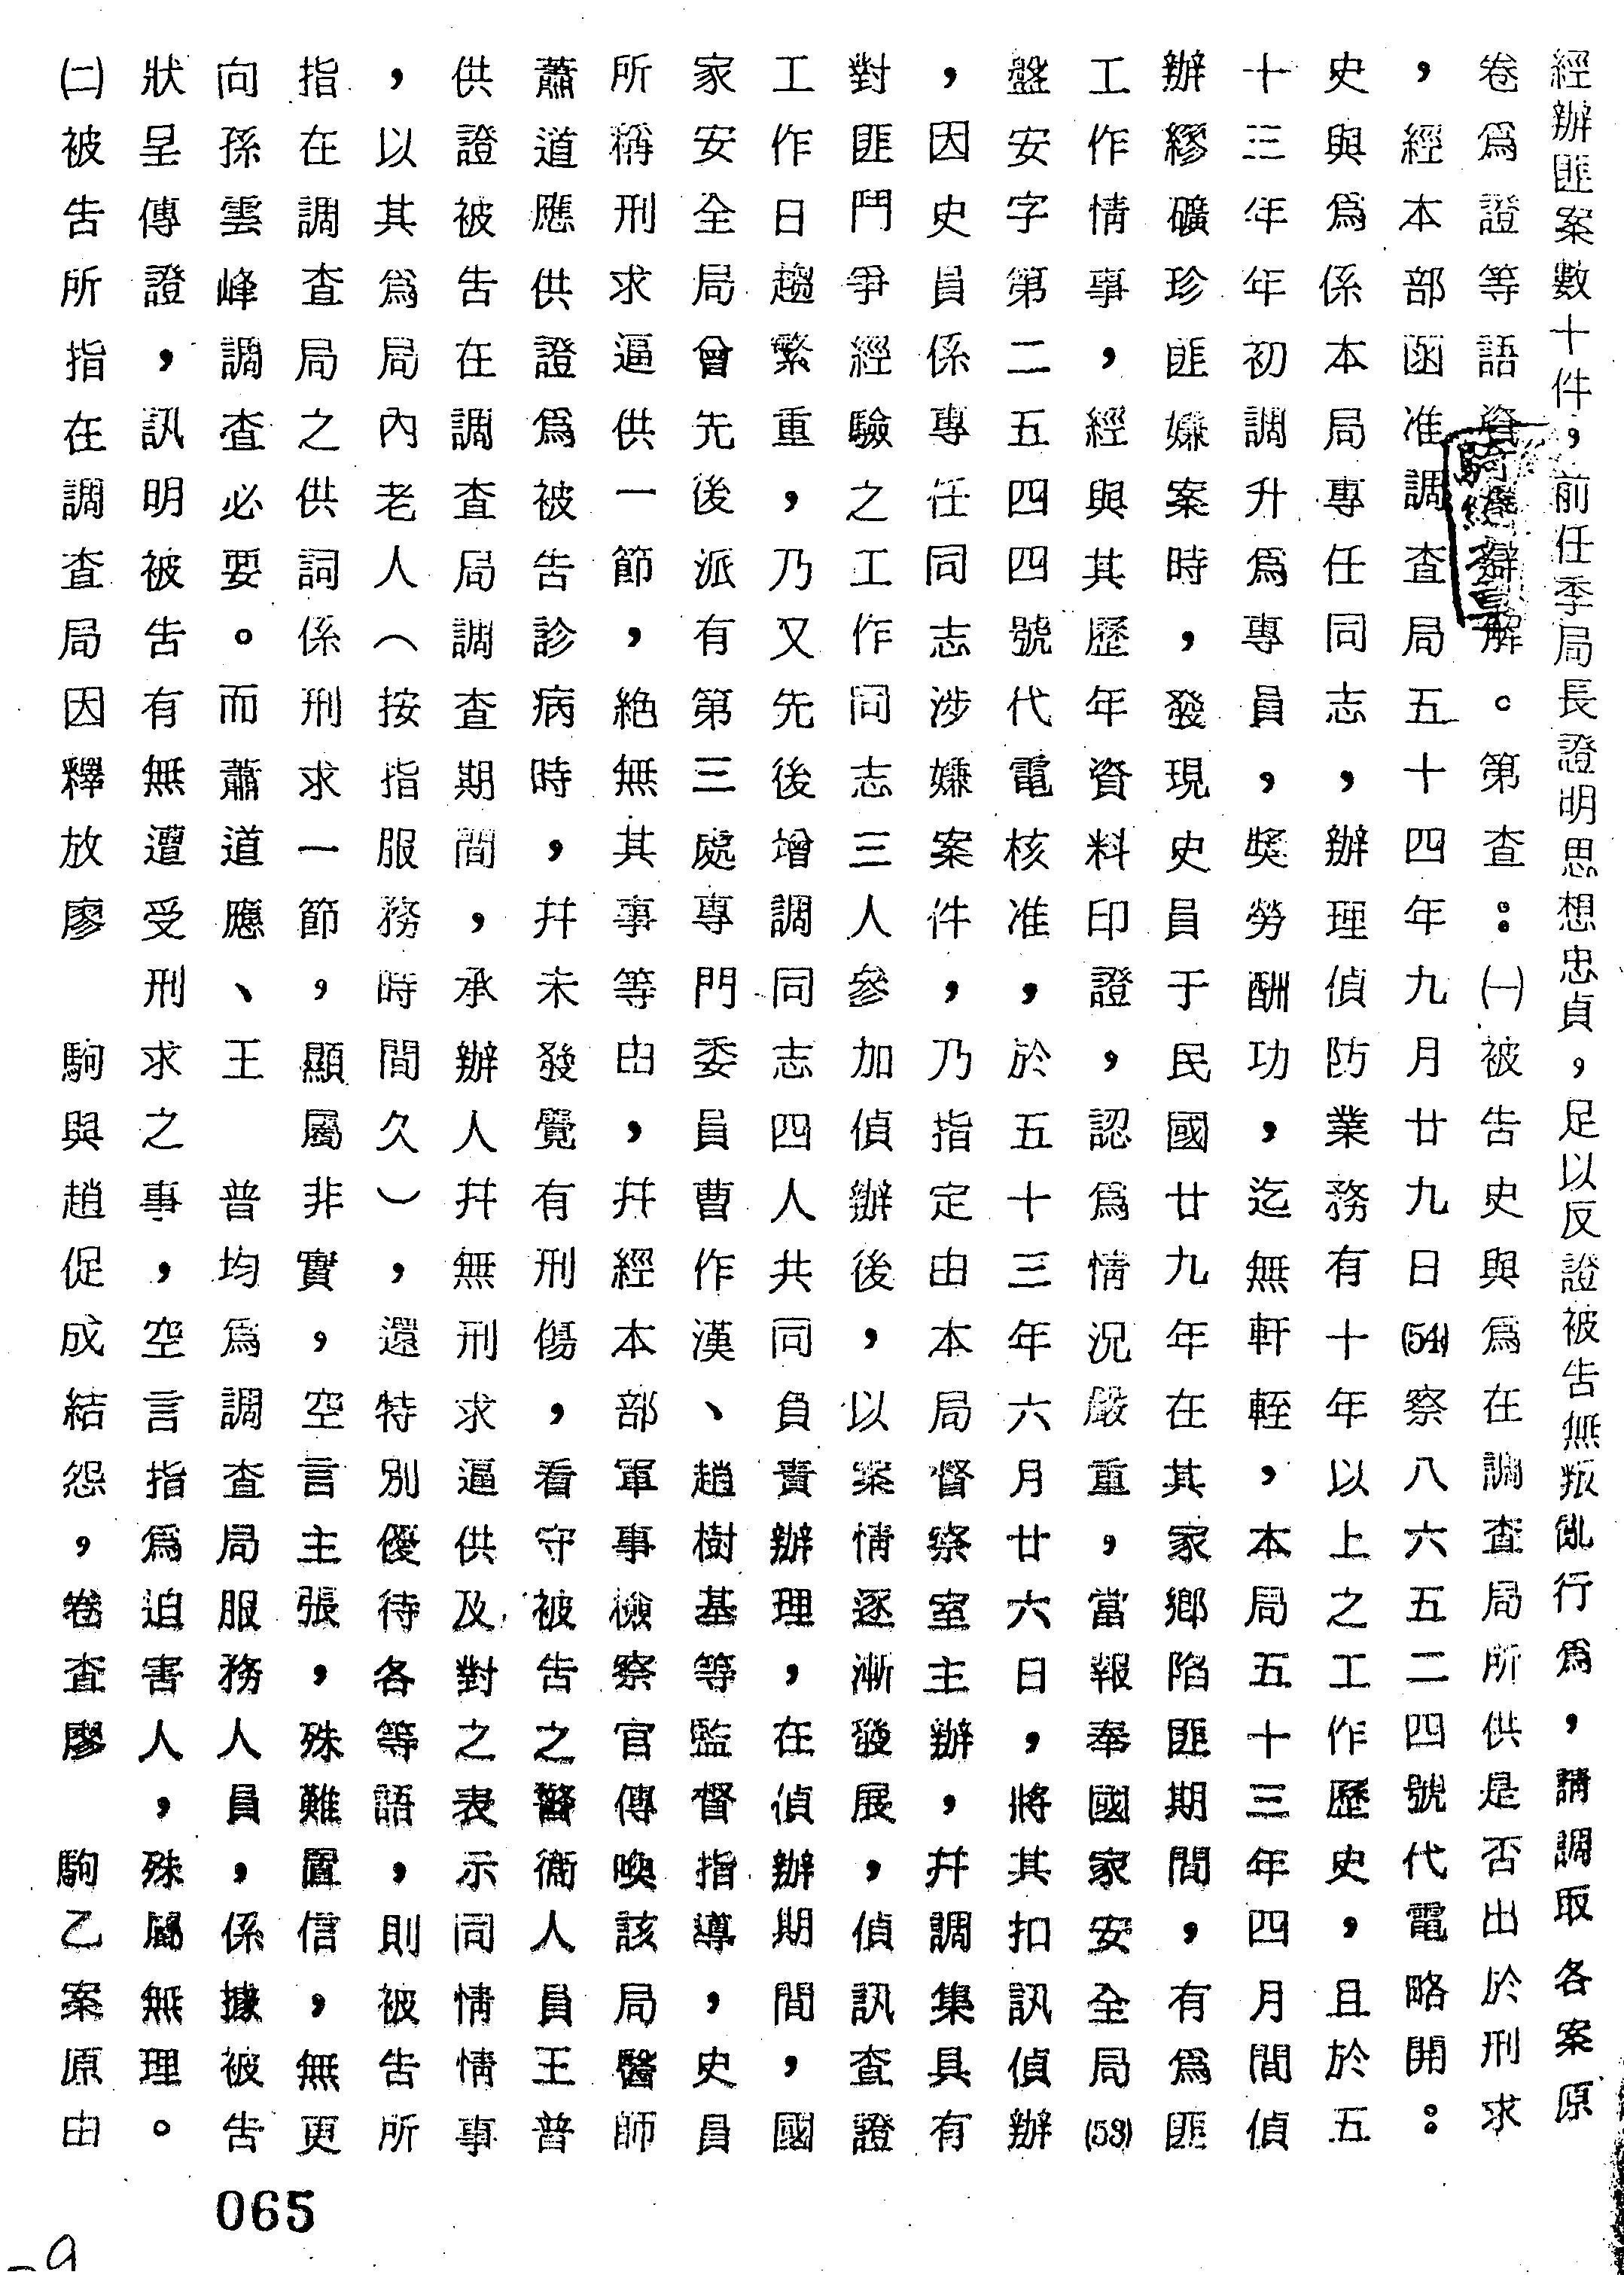 經辦匪案數十件，前任季局長證明思想忠貞，足以反證被告無叛亂行爲，請調取各案原
卷爲證等語資爲辯解。第查：㈠被告史與爲在調查局所供是否出於刑求
，經本部函准調查局五十四年九月廿九日(54)察八六五二四號代電略開：
史與爲係本局專任同志，辦理偵防業務有十年以上之工作歷史，且於五
十三年年初調升爲專員，獎勞酬功，迄無軒輊，本局五十三年四月間偵
辦繆礦珍匪嫌案時，發現史員于民國廿九年在其家鄉陷匪期間，有爲匪
工作情事，經與其歷年資料印證，認爲情況嚴重，當報奉國家安全局(53)
盤安字第二五四四號代電核准，於五十三年六月廿六日，將其扣訊偵辦
，因史員係專任同志涉嫌案件，乃指定由本局督察室主辦，幷調集具有
對匪鬥爭經驗之工作同志三人參加偵辦後，以案情逐漸發展，偵訊查證
工作日趨繁重，乃又先後增調同志四人共同負責辦理，在偵辦期間，國
家安全局曾先後派有第三處專門委員曹作漢、趙樹基等監督指導，史員
所稱刑求逼供一節，絕無其事等由，幷經本部軍事檢察官傳喚該局醫師
蕭道應供證爲被告診病時，幷未發覺有刑傷，看守被告之警衞人員王普
供證被告在調查局調查期間，承辦人幷無刑求逼供及對之表示同情情事
，以其爲局內老人（按指服務時間久），還特別優待各等語，則被告所
指在調查局之供詞係刑求一節，顯屬非實，空言主張，殊難置信，無更
向孫雲峰調查必要。而蕭道應、王　普均爲調查局服務人員，係據被告
狀呈傳證，訊明被告有無遭受刑求之事，空言指爲迫害人，殊屬無理。
㈡被告所指在調查局因釋放廖　駒與趙促成結怨，卷查廖　駒乙案原由
065
9